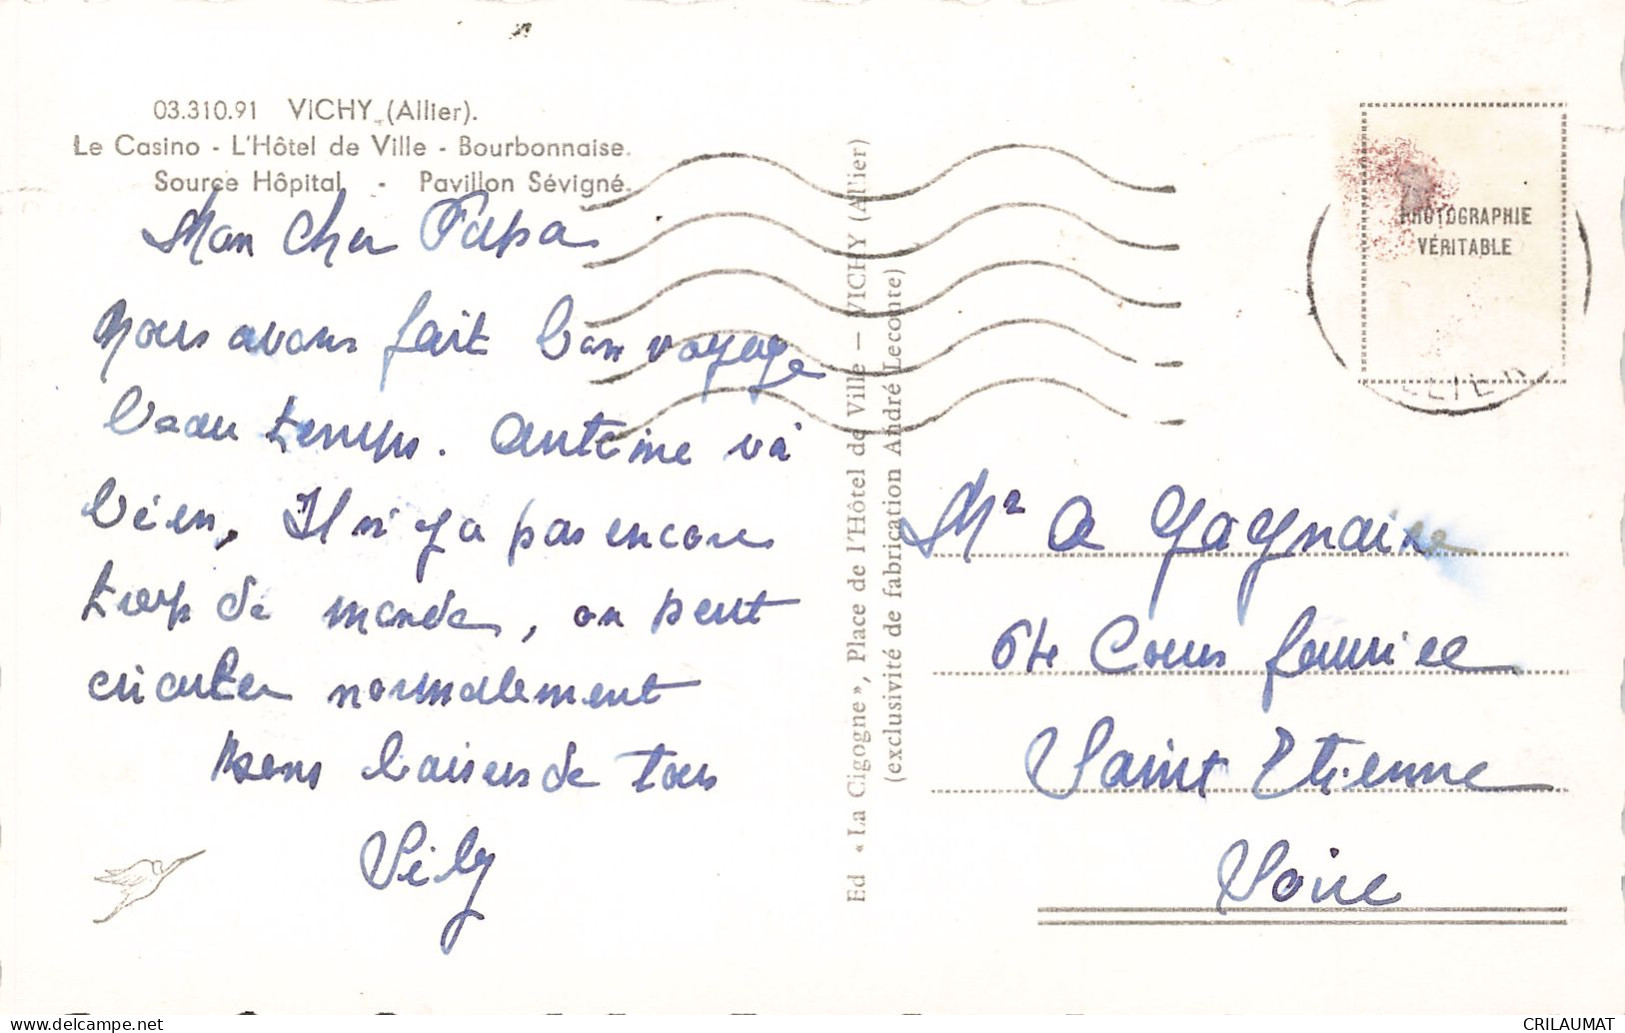 03.310.91 VICHY (Allier).
Le Casino - L'Hôtel de Ville - Bourbonnaise.
Source Hôpital - Pavillon Sévigné.
Mon Cher Papa
Nous avons fait bon voyage
beau temps. Antoine và
bien, Il n'y a pas encore
trop de monde, on peut
circuler normalement
Bons baisers de tous
Lily
Ed « La Cigogne », Place de l'Hôtel de Ville — VICHY (Allier)
(exclusivité de fabrication André Leconte)
PHOTOGRAPHIE
VÉRITABLE
ALLIER
Mr A Gagnaire
64 Cours Fauriel
Saint Etienne
Loire
CRILAUMAT